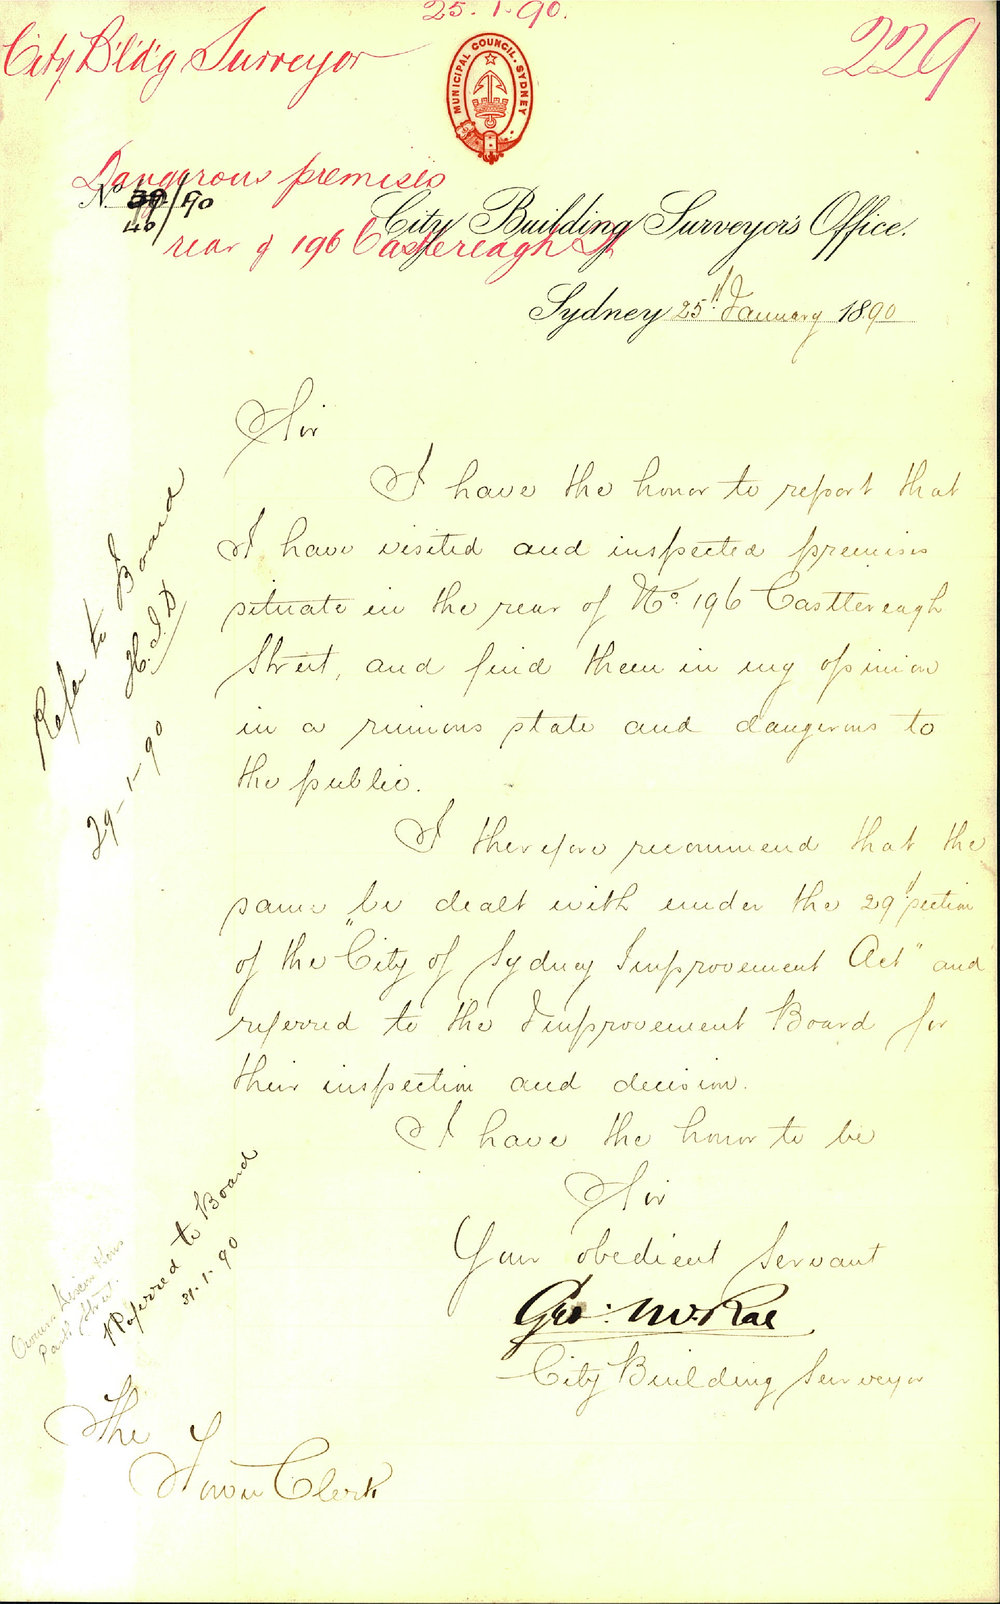 25.1.90.
City Bldg Surveyor
229
MUNICIPAL COUNCIL. SYDNEY
Dangerous premises
No 39/90
40/
rear of 196 Castlereagh St
City Building Surveyor's Office.
Sydney 25th January 1890
Sir
I have the honor to report that
I have visited and inspected premises
situate in the rear of No. 196 Castlereagh
Street, and find them in my opinion
in a ruinous state and dangerous to
the public.
I therefore recommend that the
same be dealt with under the 29th section
of the "City of Sydney Improvement Act" and
referred to the Improvement Board for
their inspection and decision.
I have the honor to be
Sir
Your obedient Servant
Geo: McRae
City Building Surveyor
The
Town Clerk
Refer to Board
29-1-90
Referred to Board
31.1.90
Park Street.